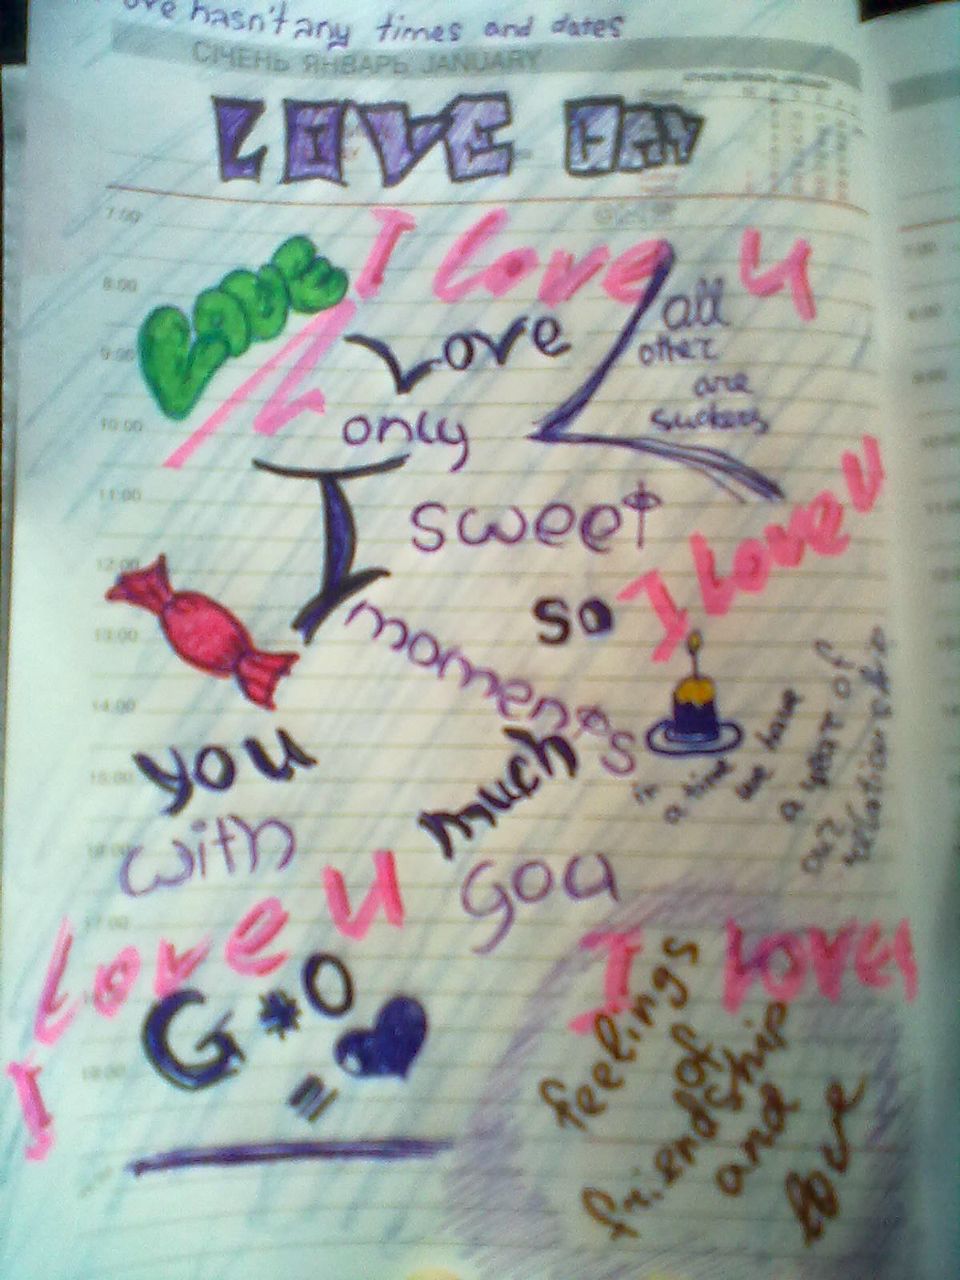 hasn't any times and dates
СІЧЕНЬ ЯНВАРЬ JANUARY
LOVE
7:00
I Love U
Love
8:00
all
other
are
suckers
9:00
Love
10:00
only
11:00
sweet
I Love U
12:00
so
13:00
moments
14:00
you
much
15:00
in
a time
we have
a year of
our
relationship
with
you
17:00
I Love U
I Love
G * O
=
feelings
of
friendship
and
love